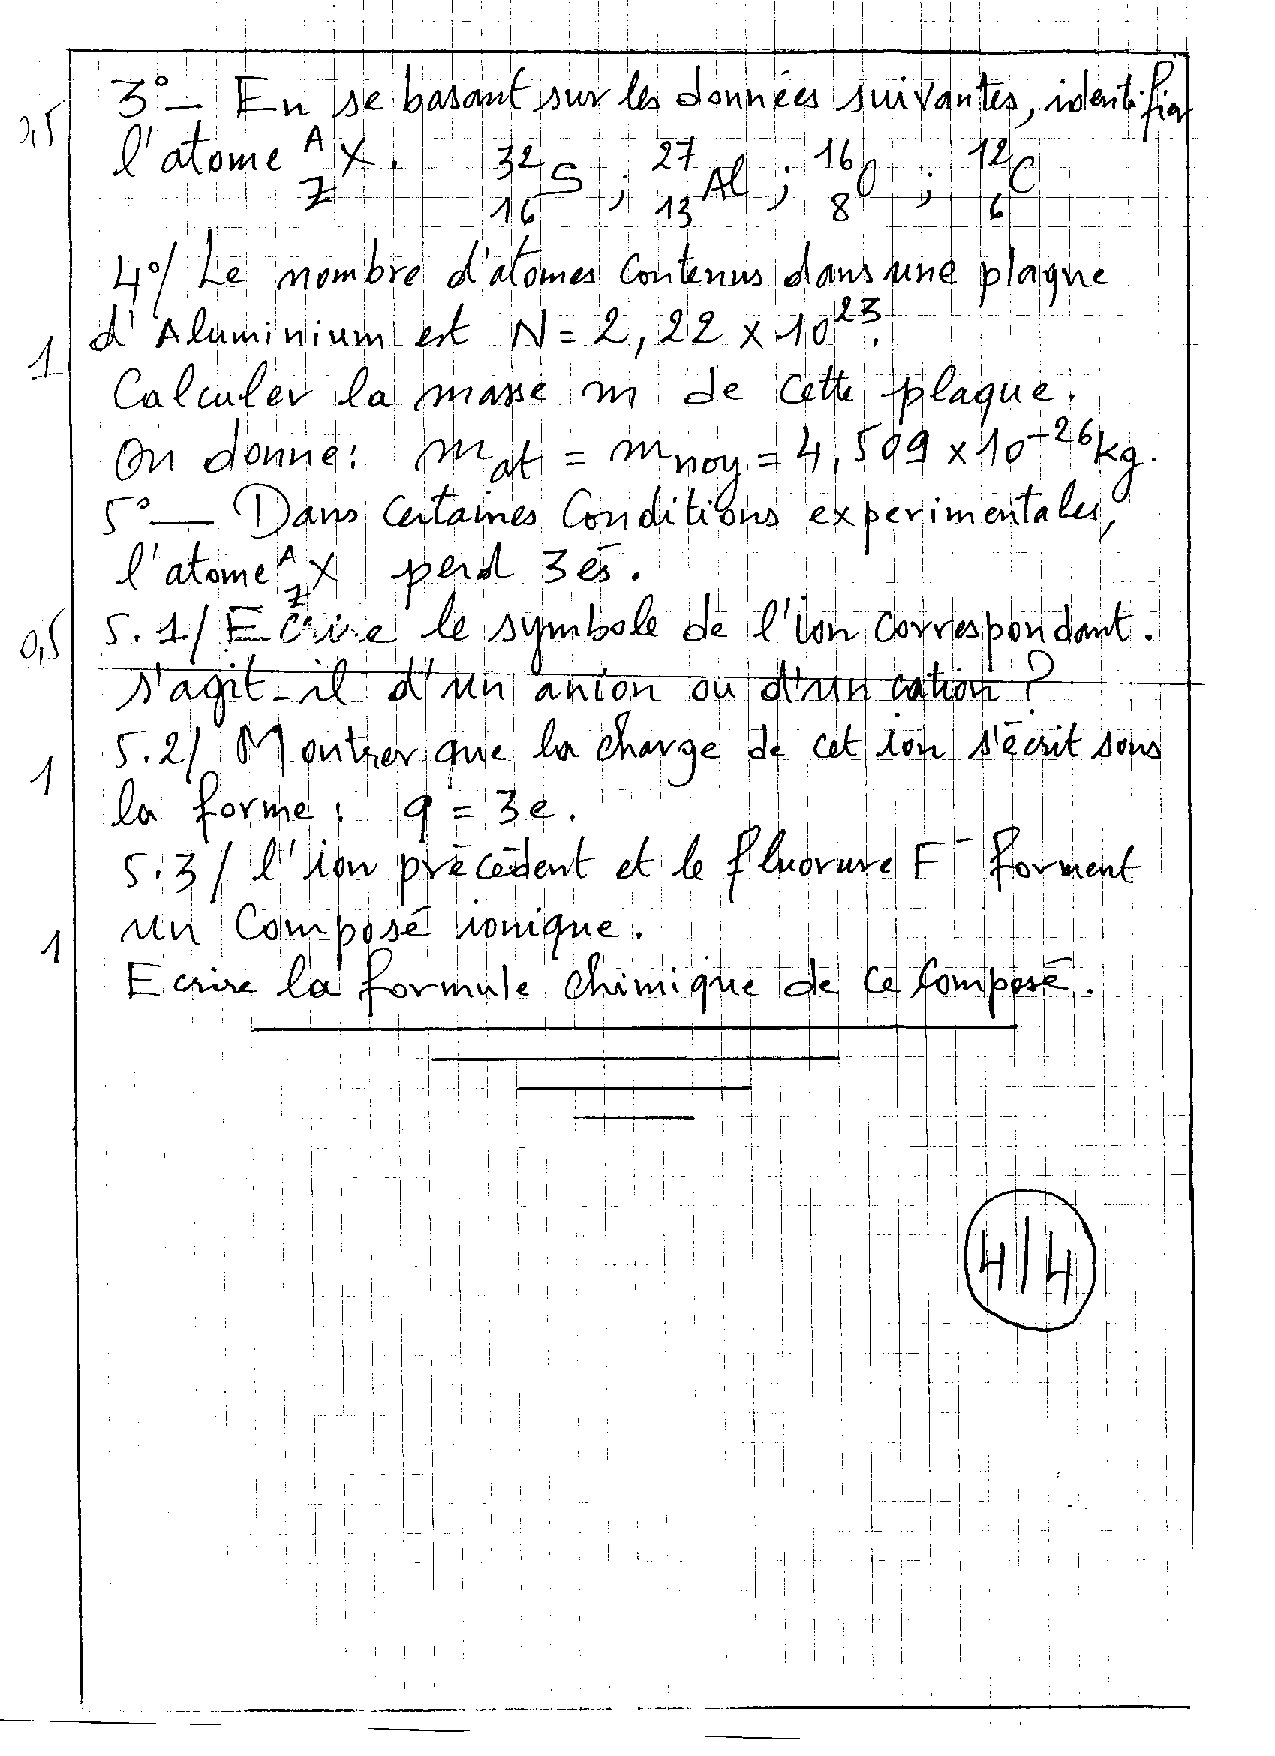 3°- En se basant sur les données suivantes, identifier
0,5
l'atome ᴬ_Z X. ³²₁₆S ; ²⁷₁₃Al ; ¹⁶₈O ; ¹²₆C
4°/ Le nombre d'atomes contenus dans une plaque
d'Aluminium est N = 2,22 × 10²³.
1
Calculer la masse m de cette plaque.
On donne: m_at = m_noy = 4,509 × 10⁻²⁶ kg.
5°- Dans certaines Conditions experimentales,
l'atome ᴬ_Z X perd 3és.
0,5
5.1/ Ecrire le symbole de l'ion correspondant.
s'agit-il d'un anion ou d'un cation ?
5.2/ Montrer que la charge de cet ion s'écrit sous
1
la forme : q = 3e.
5.3/ l'ion précédent et le fluorure F⁻ forment
un Composé ionique.
1
Ecrire la formule chimique de ce Composé.
4/4